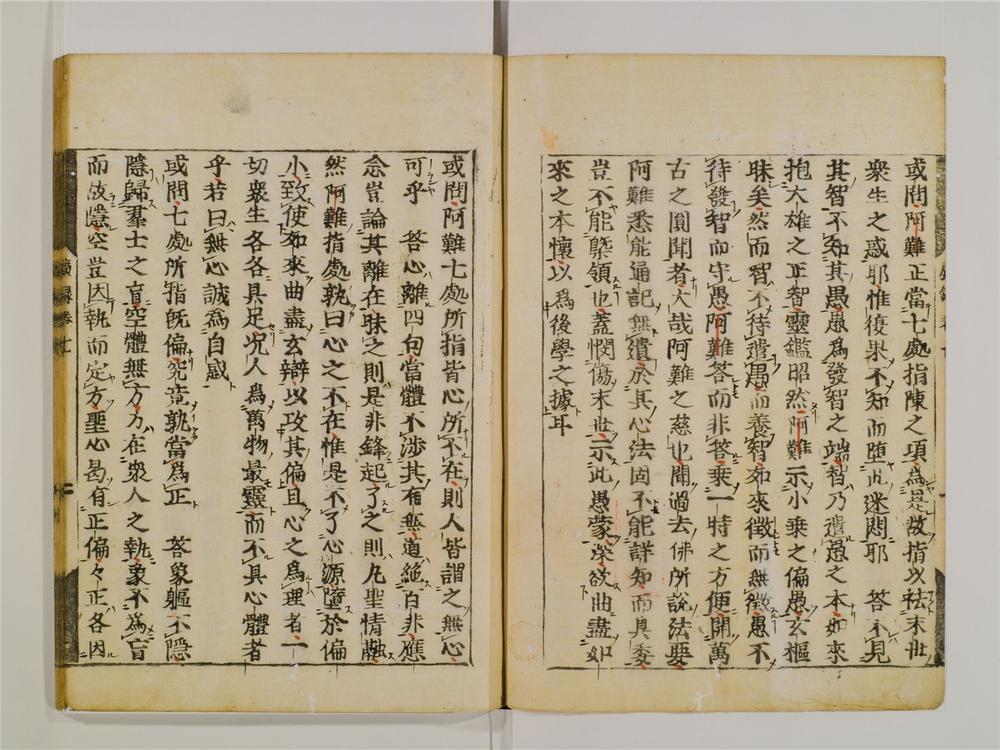 或問阿難正當七處指陳之項為是故指以袪末世
衆生之惑耶惟復果不知而墮此迷悶耶　答不見
其智不知其愚愚為發智之端智乃遣愚之本如來
抱大雄之正智靈鑑昭然阿難示小乗之偏愚玄樞
昧矣然而智不待遣愚而養智如來徵而無徵愚不
待發智而守愚阿難答而非答乗一時之方便開萬
古之圓聞者大哉阿難之慈也聞過去佛所說法要
阿難悉能誦記無遺於其心法固不能詳知而具委
豈不能槩領也蓋憫傷末世示此愚蒙深欲曲盡如
來之本懷以為後學之據耳
或問阿難七處所指皆心所不在則人皆謂之無心
可乎　答心離四句當體不渉其有無道絶百非應
念豈論其離在昧之則是非鋒起了之則凡聖情融
然阿難指處執曰心之不在惟是不了心源墮於偏
小致使如來曲盡玄辯以攻其偏且心之為理者一
切衆生各各具足况人為萬物最靈而不具心體者
乎若曰無心誠為自惑
或問七處所指既偏究竟孰當為正　答象軀不隱
隱歸羣士之盲空體無方方在衆人之執象不為盲
而故隱空豈因執而定方聖心曷有正偏々正各因
廣録卷十